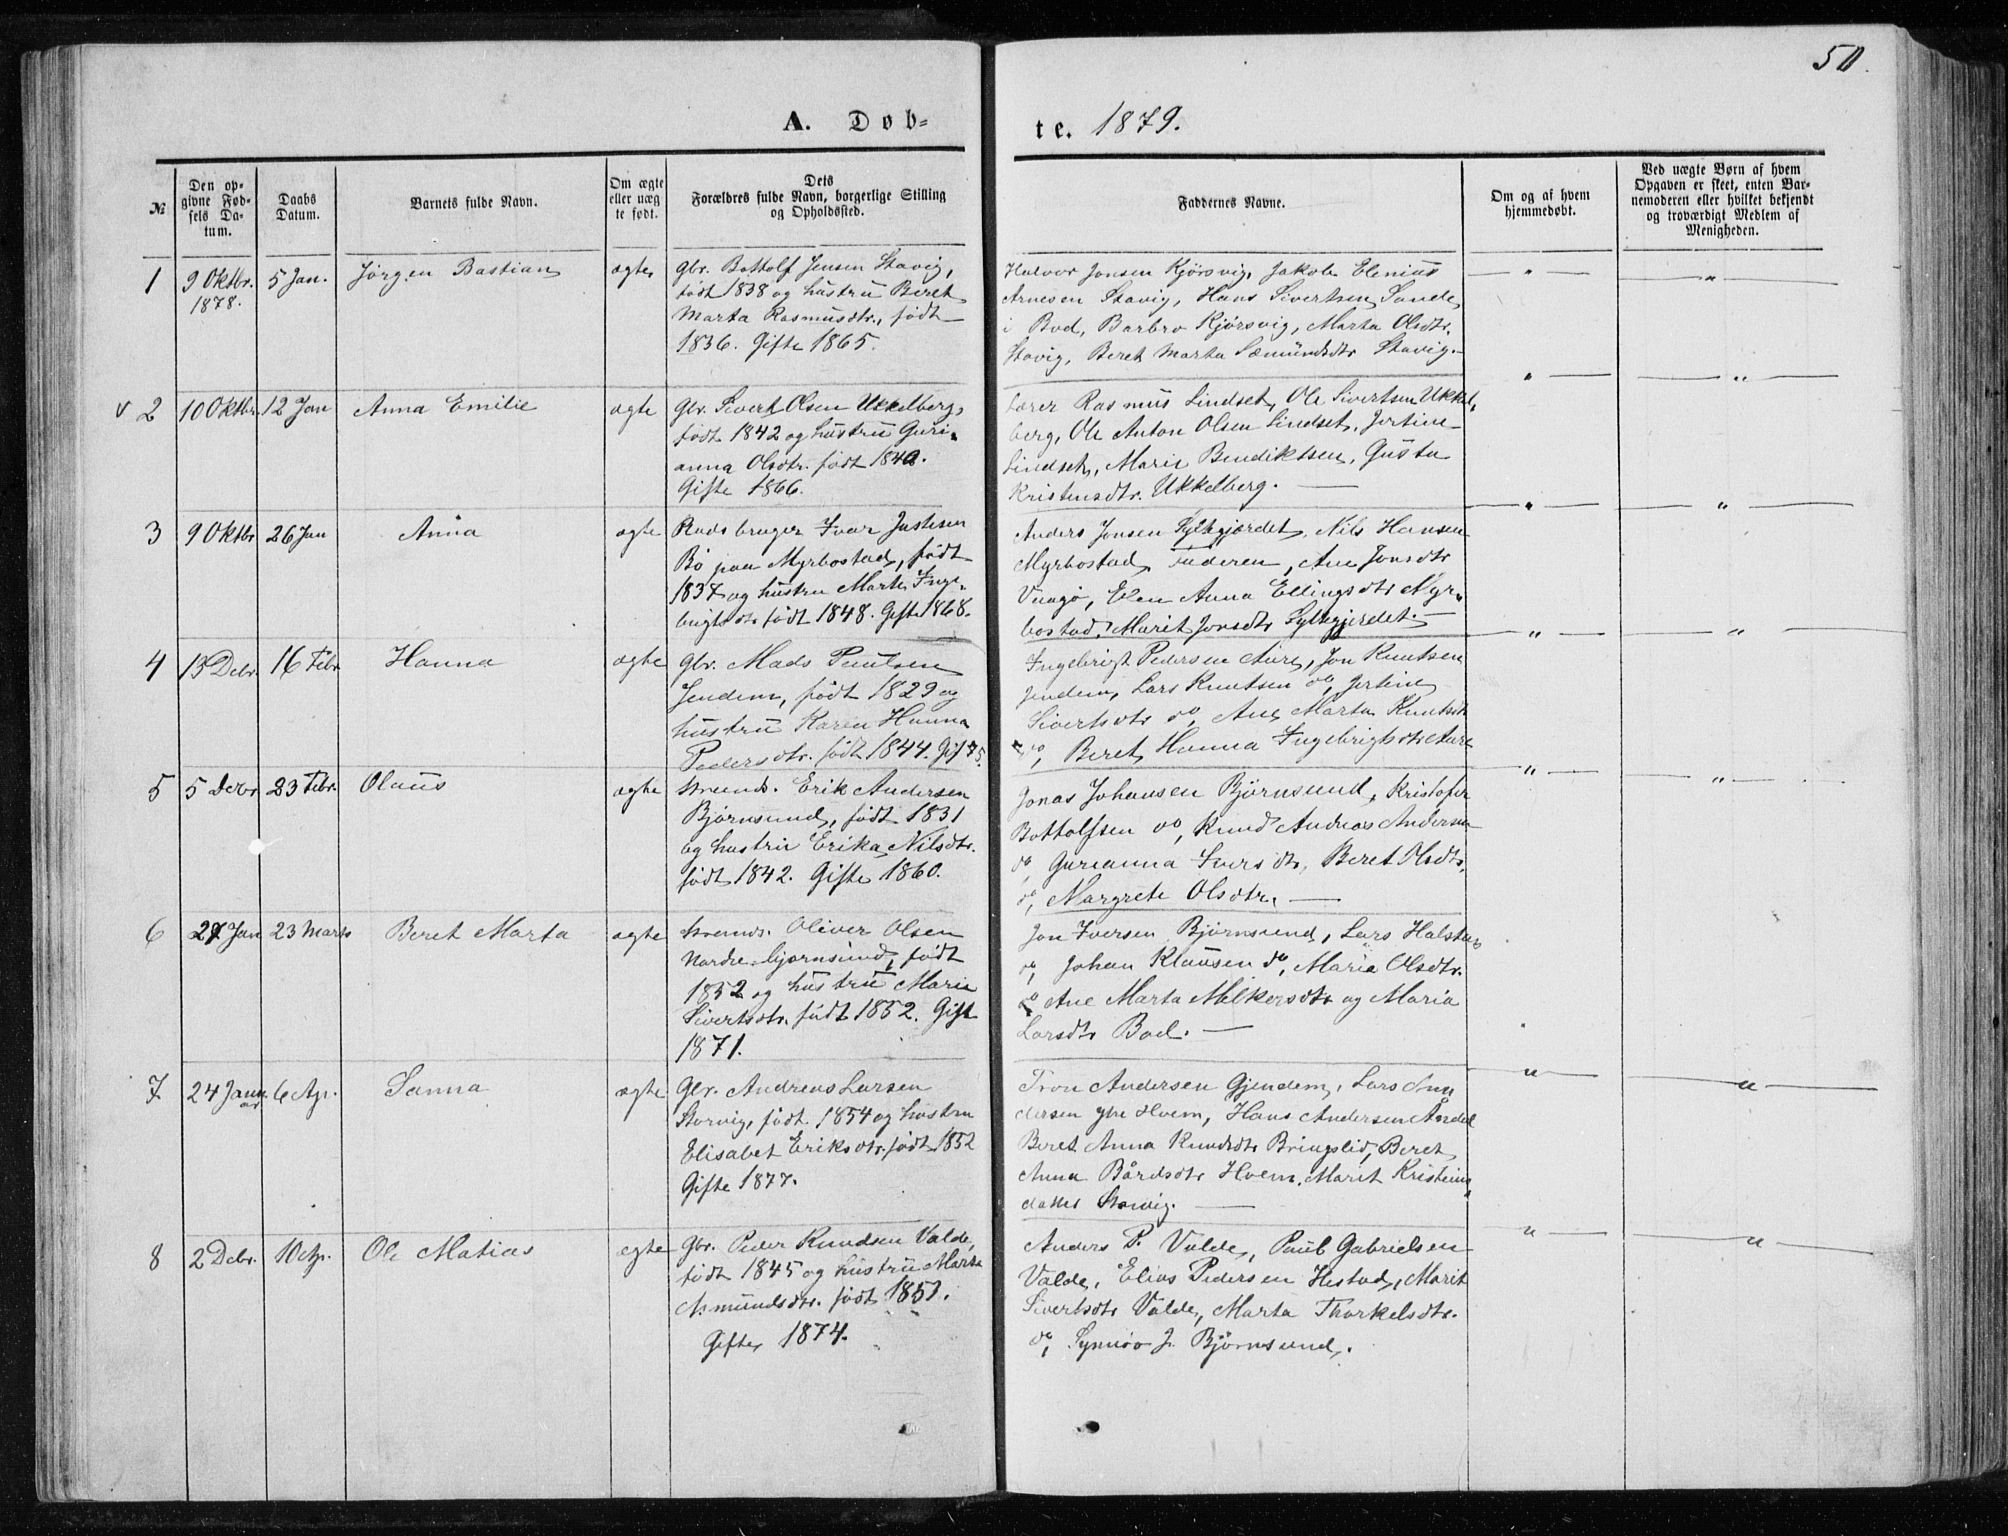 50.
A. Døb-
te. 1879.
№
Den op-
givne Fød-
sels Da-
tum.
Daabs
Datum.
Barnets fulde Navn.
Om ægte
eller uæg
te født.
Dets
Forældres fulde Navn, borgerlige Stilling
og Opholdssted.
Faddernes Navne.
Om og af hvem
hjemmedøbt.
Ved uægte Børn af hvem
Opgaven er skeet, enten Bar-
nemoderen eller hvilket bekjendt
og troværdigt Medlem af
Menigheden.
1
9 Oktbr.
1878.
5 Jan.
Jörgen Bastian
ægte
Gbr. Bottolf Jensen Stavig,
født 1838 og hustru Beret
Marta Rasmusdtr., født
1836. Gifte 1865.
Halvor Jonsen Kjörsvig, Jakob Elenius
Arnesen Stavig, Hans Sivertsen Sande
i Bud, Barbro Kjörsvig, Marta Olsdtr.
Stavig, Beret Marta Sæmundsdtr Stavig.
2
10 Oktbr.
12 Jan
Anna Emilie
ægte
Gbr. Sivert Olsen Ukkelberg,
født 1842 og hustru Guri-
anna Olsdtr. født 1840.
Gifte 1866.
Lærer Rasmus Lindset, Ole Sivertsen Ukkel-
berg, Ole Anton Olsen Lindset, Jertine
Lindset, Marie Bendiktsen, Gusta
Kristensdtr. Ukkelberg.
3
9 Oktbr
26 Jan
Anna
ægte
Rudsbruger Ivar Justesen
Bö paa Myrbostad, født
1837 og hustru Marte Inge-
brigtsdtr født 1848. Gifte 1868.
Anders Jonsen Sylthgjærdet, Nils Hansen
Myrbostad, Faderen, Ane Jonsdtr
Vaagö, Elen Anna Ellingsdtr Myr-
bostad, Marit Jonsdtr Sylthgjerdet.
4
13 Debr.
16 Febr
Hanna
ægte
Gbr. Mads Paulsen
Jendem, født 1829 og
hustru Karen Hanna
Pedersdtr. født 1844. Gift 75.
Ingebrigt Pedersen Aure, Jon Knutsen
Jendem, Lars Knutsen do, Jertine
Sivertsdtr do, Ane Marta Knutsdtr
do, Beret Hanna Ingebrigtsdtr Aure
5
5 Debr
23 Febr.
Olaus
ægte
Strands. Erik Andersen
Björnsund, født 1831
og hustru Erika Nilsdtr.
født 1842. Gifte 1860.
Jonas Johansen Björnsund, Kristofer
Bottolfsen do, Knud Andreas Andersen
do, Gurianna Iversdtr, Beret Olsdtr,
do, Margrete Olsdtr.
6
27 Jan
23 Marts
Beret Marta
ægte
Strands. Oliver Olsen
Nordre Bjørnsund, født
1852 og hustru Marie
Sivertsdtr. født 1852. Gift
1871.
Jon Iversen Björnsund, Lars Halsten
do, Johan Klausen do, Maria Olsdtr.
do Ane Marta Melkersdtr og Maria
Larsdtr Bod.
7
24 Janu
ar
6 Ap.
Sanna
ægte
Gbr. Andreas Larsen
Storvig, født 1854 og hustru
Elisabet Eriksdtr. født 1852
Gifte 1877.
Tron Andersen Gjendem, Lars An-
dersen ytre Hoem, Hans Andersen Årdal
Beret Anna Knudsdtr Bringslid, Beret
Anna Bårdsdtr Hoem, Marit Kristens
datter Storvig.
8
2 Debr.
10 Ap.
Ole Matias
ægte
Gbr. Peder Knudsen Valde,
født 1845 og hustru Marta
Asmundsdtr. født 1851.
Gifte 1874.
Anders P. Valde, Paul Gabrielsen
Valde, Elias Pedersen Hestad, Marit
Sivertsdtr Valde, Marta Thorkelsdtr.
do, Synnöv J. Björnsund.